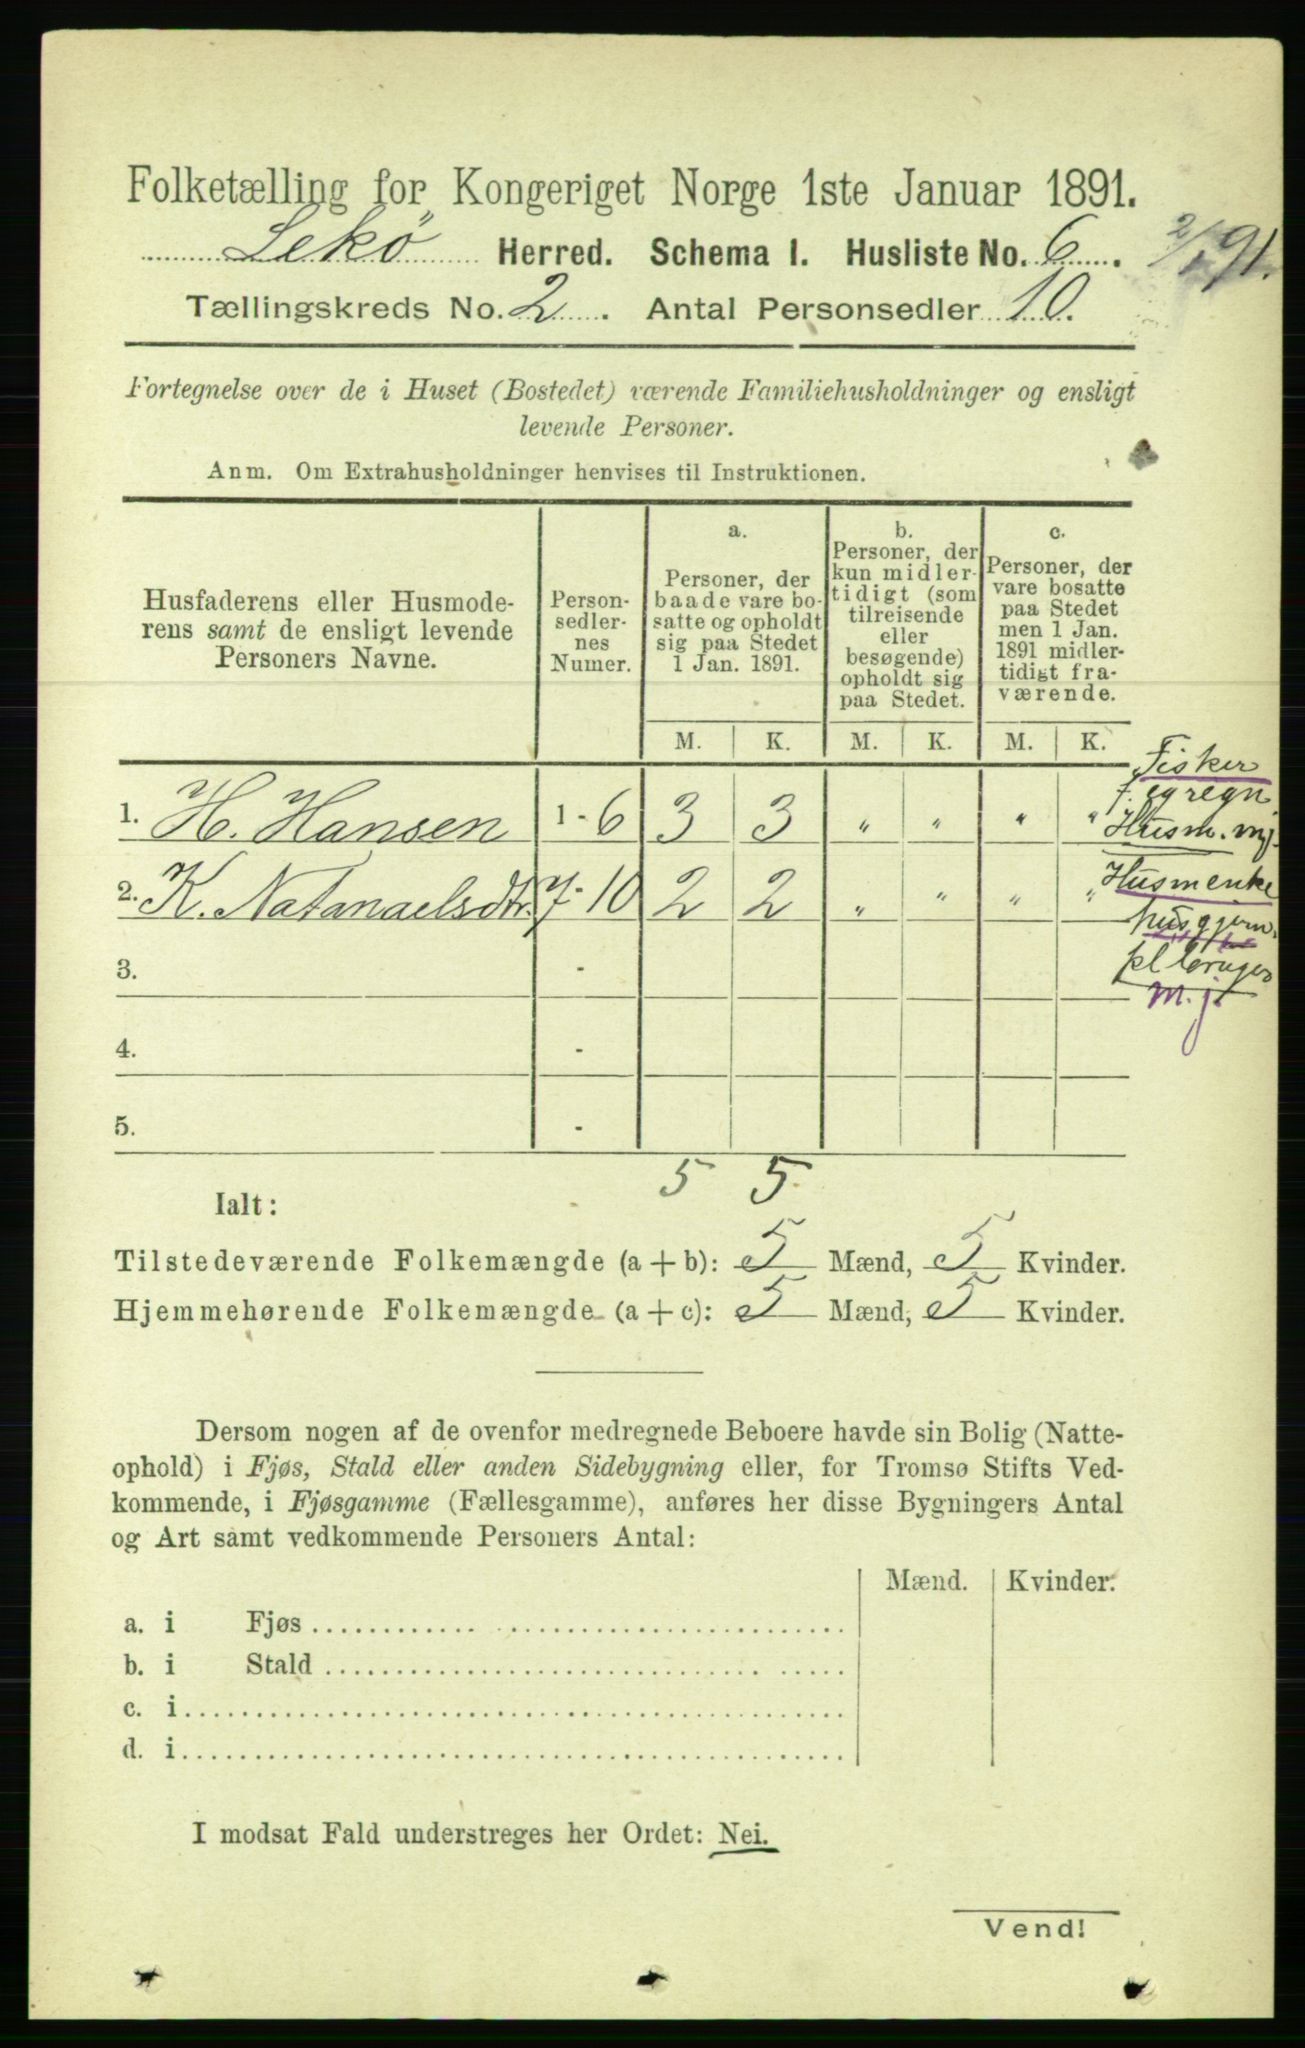 Folketælling for Kongeriget Norge 1ste Januar 1891.
Lekö Herred. Schema I. Husliste No. 6. 2/1 91.
Tællingskreds No. 2. Antal Personsedler 10.
Fortegnelse over de i Huset (Bostedet) værende Familiehusholdninger og ensligt
levende Personer.
Anm. Om Extrahusholdninger henvises til Instruktionen.
Husfaderens eller Husmode-
rens samt de ensligt levende
Personers Navne.
Person-
sedler-
nes
Numer.
a.
Personer, der
baade vare bo-
satte og opholdt
sig paa Stedet
1 Jan. 1891.
b.
Personer, der
kun midler-
tidigt (som
tilreisende
eller
besøgende)
opholdt sig
paa Stedet.
c.
Personer, der
vare bosatte
paa Stedet
men 1 Jan.
1891 midler-
tidigt fra-
værende.
M. K. M. K. M. K.
1. H. Hansen 1 - 6 3 3 " " " "
Fisker
f. eg regn
Husm. mj.
2. K. Natanaelsdtr. 7 - 10 2 2 " " " "
Husmenke
husgjern.
m.j.
3. -
4. -
5. -
5 5.
Ialt:
Tilstedeværende Folkemængde (a + b): 5 Mænd, 5 Kvinder.
Hjemmehørende Folkemængde (a + c): 5 Mænd, 5 Kvinder.
Dersom nogen af de ovenfor medregnede Beboere havde sin Bolig (Natte-
ophold) i Fjøs, Stald eller anden Sidebygning eller, for Tromsø Stifts Ved-
kommende, i Fjøsgamme (Fællesgamme), anføres her disse Bygningers Antal
og Art samt vedkommende Personers Antal:
Mænd. Kvinder.
a. i Fjøs
b. i Stald
c. i
d. i
I modsat Fald understreges her Ordet: Nei.
Vend!